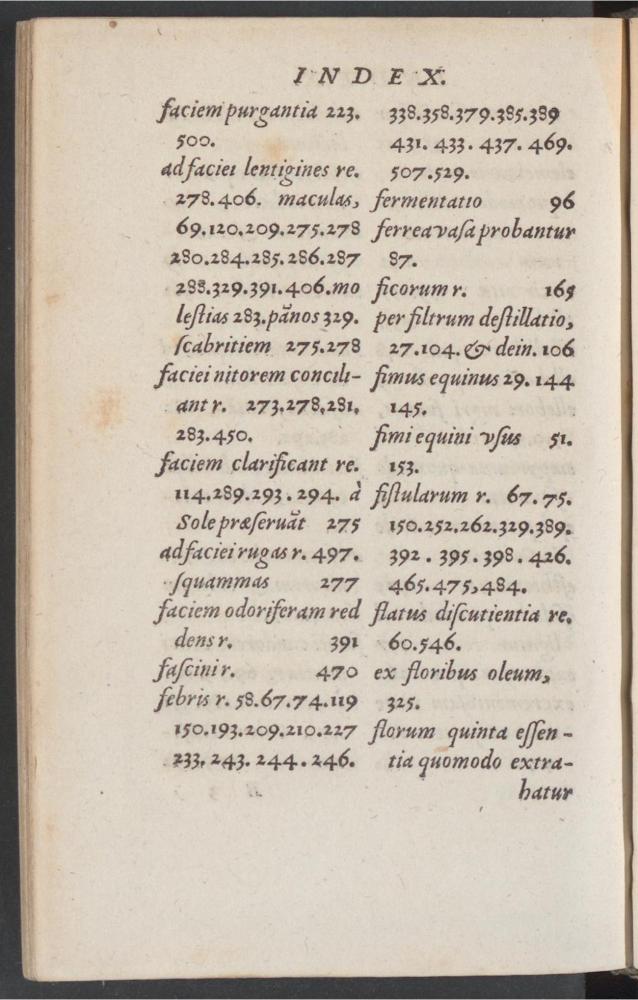 INDEX.
faciem purgantia 223.
500.
ad faciei lentigines re.
278.406. maculas,
69.120.209.275.278
280.284.285.286.287
288.329.391.406.mo
leſtias 283.pãnos 329.
ſcabritiem 275.278
faciei nitorem concili-
ant r. 273.278,281,
283.450.
faciem clarificant re.
114.289.293.294. à
Sole præſeruãt 275
ad faciei rugas r. 497.
ſquammas 277
faciem odoriferam red
dens r. 391
faſcini r. 470
febris r. 58.67.74.119
150.193.209.210.227
233.243.244.246.
338.358.379.385.389
431.433.437.469.
507.529.
fermentatio 96
ferrea vaſa probantur
87.
ficorum r. 165
per filtrum deſtillatio,
27.104. & dein. 106
fimus equinus 29.144
145.
fimi equini vſus 51.
153.
fiſtularum r. 67.75.
150.252.262.329.389.
392.395.398.426.
465.475,484.
flatus diſcutientia re.
60.546.
ex floribus oleum,
325.
florum quinta eſſen-
tia quomodo extra-
hatur